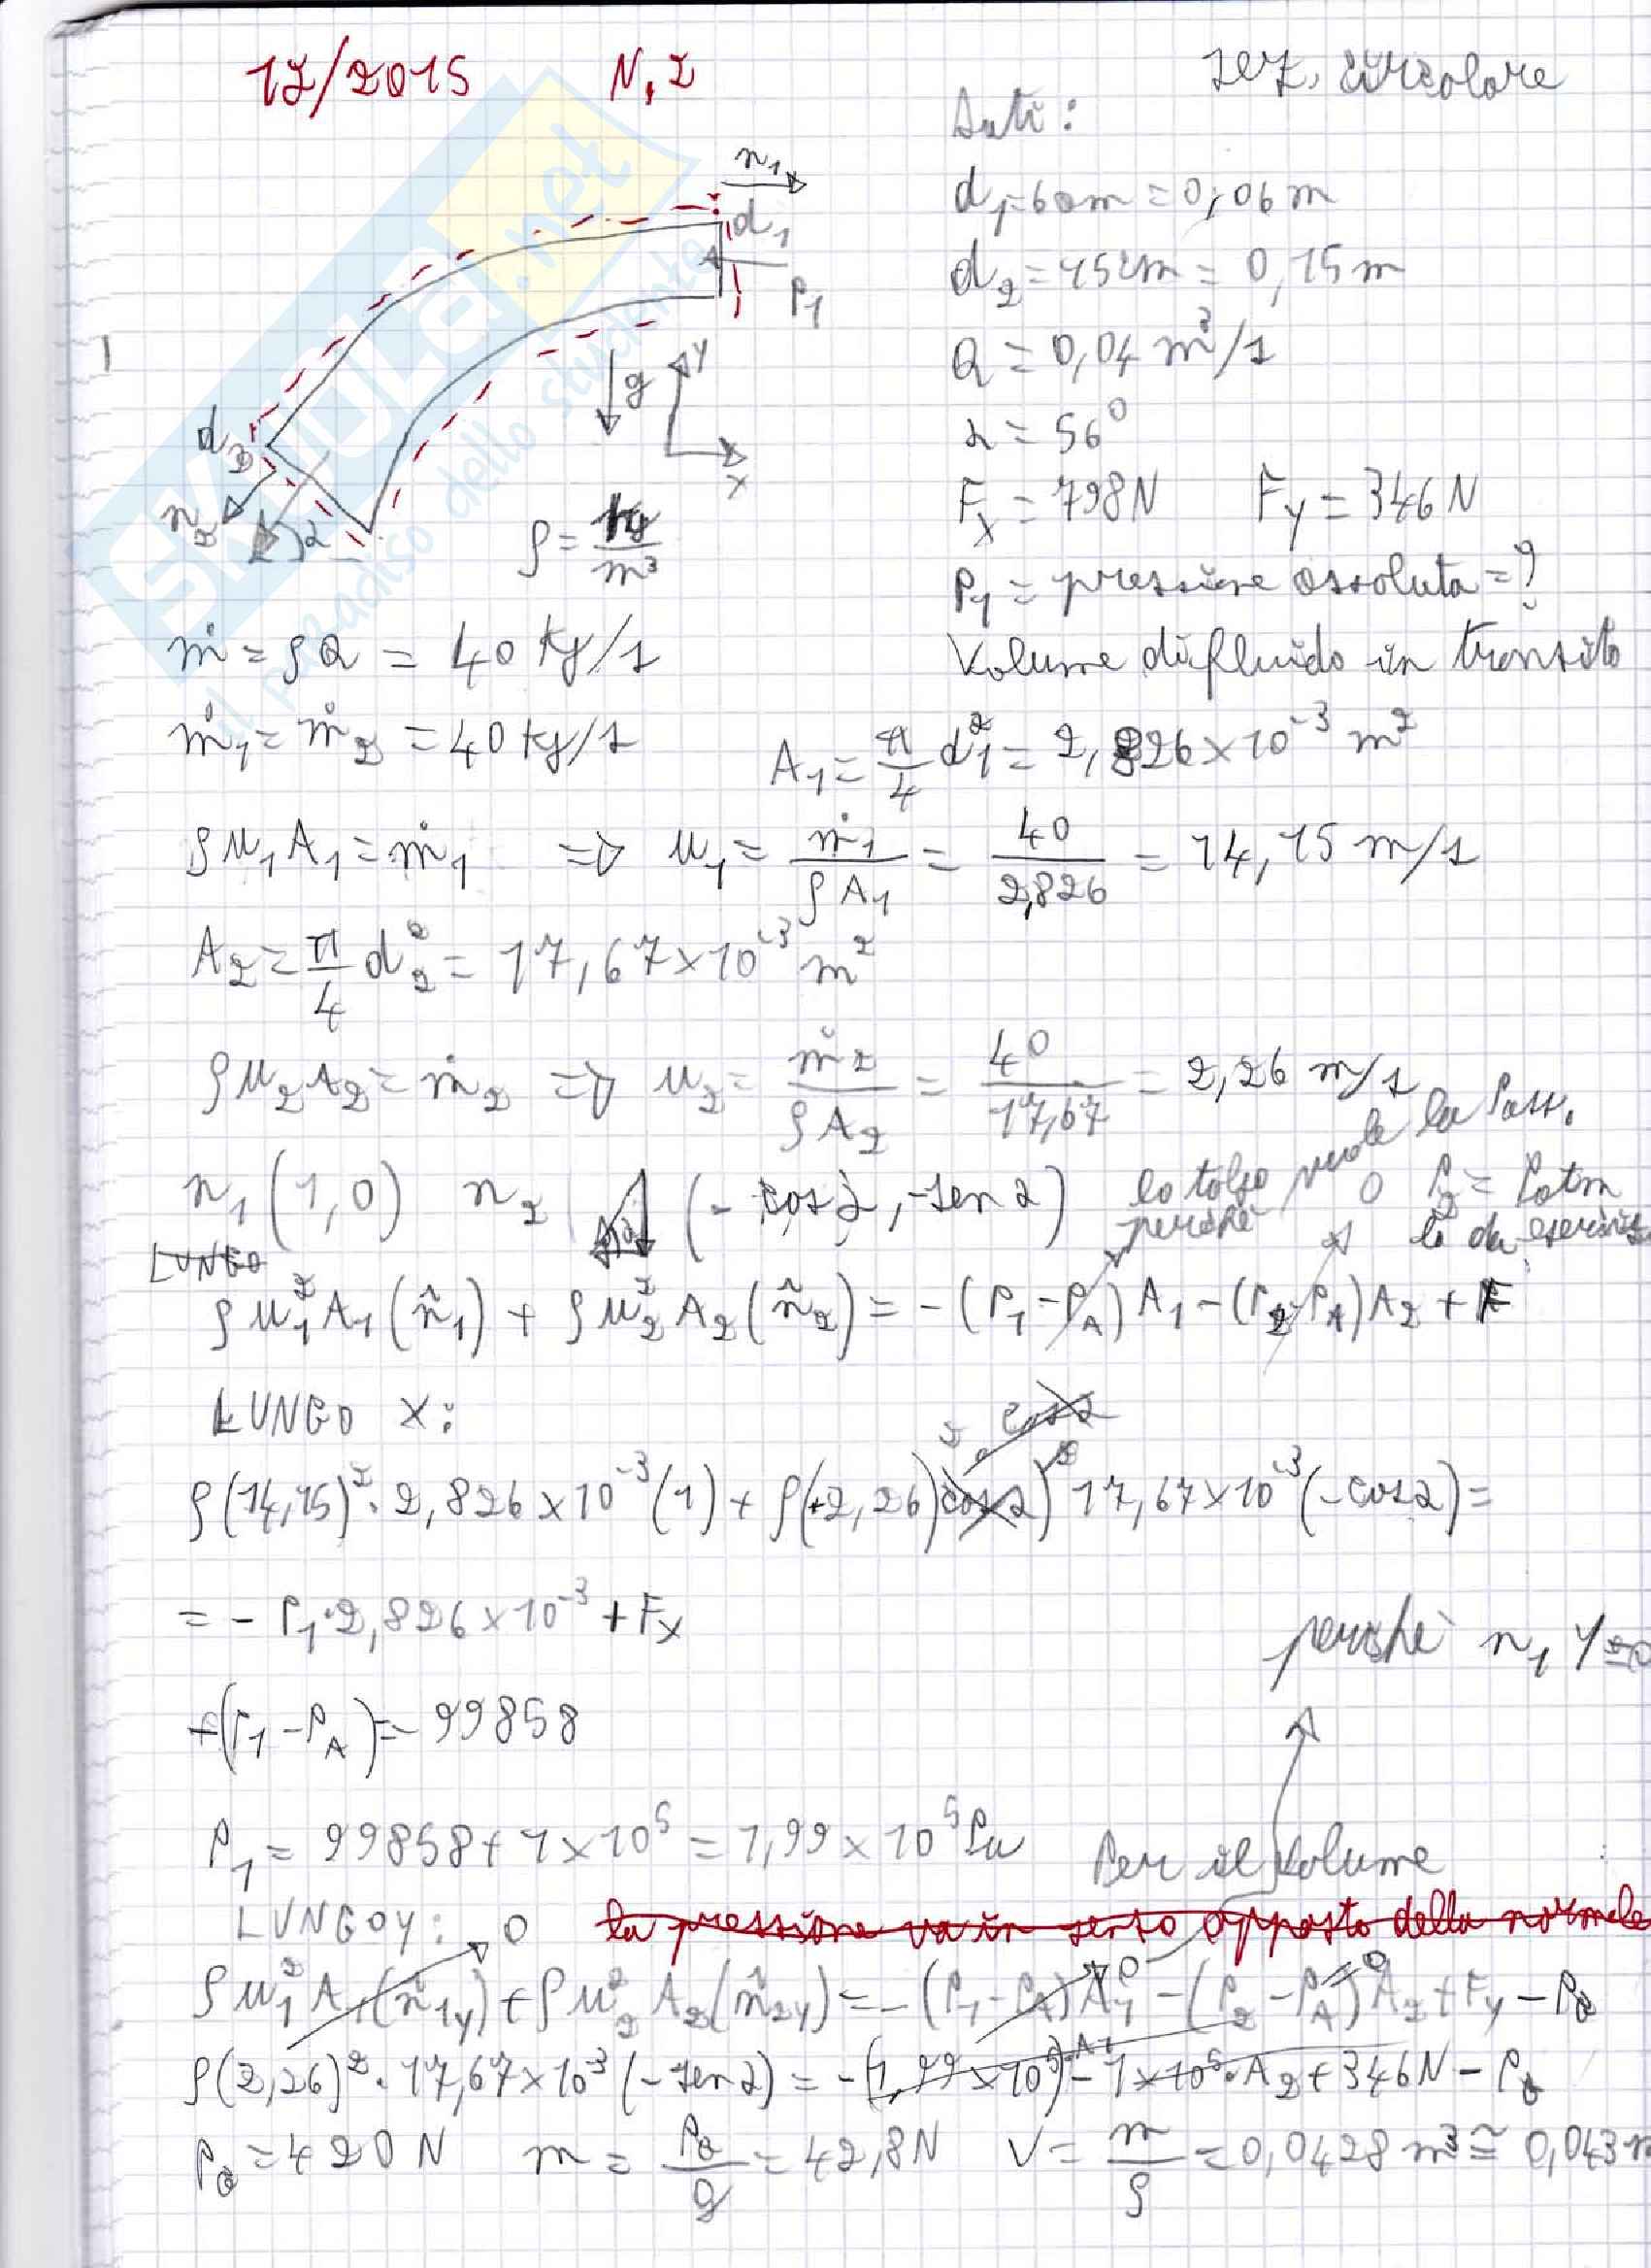 17/2015 N.2
sez. circolare
Dati:
d₁=6cm=0,06m
d₂=15cm=0,15m
Q=0,04 m³/s
α=56°
Fx=798N Fy=346N
P₁=pressione assoluta=?
Volume di fluido in transito
n₁
d₁
P₁
g
y
x
d₂
n₂
α
ρ=kg/m³
SKUOLA.net
il paradiso dello studente
ṁ=ρQ=40 kg/s
ṁ₁=ṁ₂=40 kg/s
A₁=π/4 d₁²=2,826×10⁻³ m²
ρu₁A₁=ṁ₁ ⇒ u₁=ṁ₁/ρA₁=40/2,826=14,15 m/s
A₂=π/4 d₂²=17,67×10⁻³ m²
ρu₂A₂=ṁ₂ ⇒ u₂=ṁ₂/ρA₂=40/17,67=2,26 m/s
n₁(1,0) n₂(-cosα,-senα)
lo tolgo perché vuole la Pass.
0 P₂=Patm
lo da esercizio
LUNGO
ρu₁²A₁(n̂₁)+ρu₂²A₂(n̂₂)=-(P₁-PA)A₁-(P₂-PA)A₂+F
LUNGO X:
ρ(14,15)²·2,826×10⁻³(1)+ρ(+2,26)² 17,67×10⁻³(-cosα)=
=-P₁·2,826×10⁻³+Fx
perché n₁y=0
+(P₁-PA)=-99858
P₁=99858+1×10⁵=1,99×10⁵Pa
Per il volume
LUNGO y: 0
la pressione va in senso opposto della normale
ρu₁²A₁(n̂₁y)+ρu₂²A₂(n̂₂y)=-(P₁-PA)A₁-(P₂-PA)A₂+Fy-P₀
ρ(2,26)²·17,67×10⁻³(-senα)=-(1,99×10⁵)·A₁-1×10⁵·A₂+346N-P₀
P₀=420N m=P₀/g=42,8N V=m/ρ=0,0428m³≅0,043m